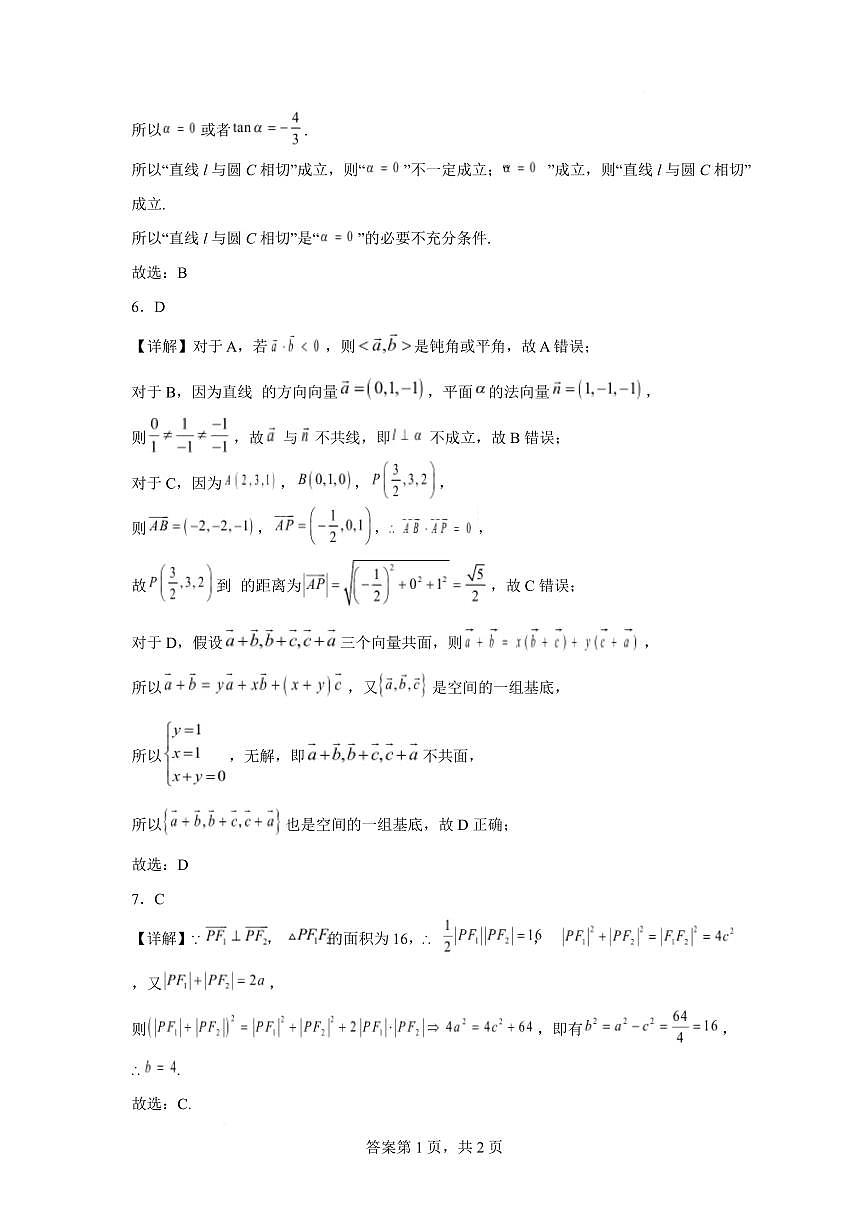 所以α = 0 或者 tan α = −4/3 .
所以“直线 l 与圆 C 相切”成立，则“α = 0 ”不一定成立；“α = 0 ”成立，则“直线 l 与圆 C 相切”
成立.
所以“直线 l 与圆 C 相切”是“α = 0 ”的必要不充分条件.
故选：B
6．D
【详解】对于 A，若 a⃗ · b⃗ < 0 ，则 < a⃗,b⃗ > 是钝角或平角，故 A 错误；
对于 B，因为直线 的方向向量 a⃗ = (0,1,−1)，平面 α 的法向量 n⃗ = (1,−1,−1)，
则 0/1 ≠ 1/−1 ≠ −1/−1 ，故 a⃗ 与 n⃗ 不共线，即 l ⊥ α 不成立，故 B 错误；
对于 C，因为 A(2,3,1)，B(0,1,0)，P(3/2,3,2)，
则 AB⃗ = (−2,−2,−1)，AP⃗ = (−1/2,0,1)，∴ AB⃗ · AP⃗ = 0 ，
故 P(3/2,3,2) 到 的距离为 |AP⃗| = √((−1/2)² + 0² + 1²) = √5/2 ，故 C 错误；
对于 D，假设 a⃗ + b⃗,b⃗ + c⃗,c⃗ + a⃗ 三个向量共面，则 a⃗ + b⃗ = x(b⃗ + c⃗) + y(c⃗ + a⃗) ，
所以 a⃗ + b⃗ = ya⃗ + xb⃗ + (x + y)c⃗ ，又{a⃗,b⃗,c⃗} 是空间的一组基底，
所以 { y=1 x=1 x+y=0 ，无解，即 a⃗ + b⃗,b⃗ + c⃗,c⃗ + a⃗ 不共面，
所以{a⃗ + b⃗,b⃗ + c⃗,c⃗ + a⃗} 也是空间的一组基底，故 D 正确；
故选：D
7．C
【详解】∵ PF₁⃗ ⊥ PF₂⃗， △PF₁F₂的面积为 16，∴ 1/2|PF₁||PF₂| = 16， |PF₁|² + |PF₂|² = |F₁F₂|² = 4c²
，又|PF₁| + |PF₂| = 2a ，
则(|PF₁| + |PF₂|)² = |PF₁|² + |PF₂|² + 2|PF₁|·|PF₂| ⇒ 4a² = 4c² + 64 ，即有 b² = a² − c² = 64/4 = 16 ，
∴ b = 4.
故选：C.
答案第 1 页，共 2 页